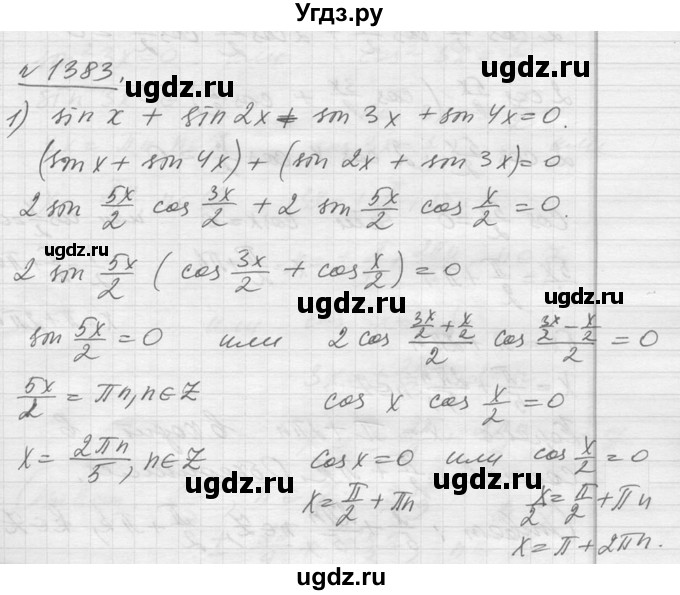 Угдз.ру
№ 1383.
ugdz.ru ugdz.ru
1) sin x + sin 2x + sin 3x + sin 4x = 0.
(sin x + sin 4x) + (sin 2x + sin 3x) = 0
ugdz.ru ugdz.ru
2 sin 5x/2 cos 3x/2 + 2 sin 5x/2 cos x/2 = 0.
ugdz.ru
2 sin 5x/2 (cos 3x/2 + cos x/2) = 0
ugdz.ru ugdz.ru
sin 5x/2 = 0 или 2 cos (3x/2 + x/2)/2 cos (3x/2 - x/2)/2 = 0
ugdz.ru
5x/2 = πn, n∈Z cos x cos x/2 = 0
x = 2πn/5, n∈Z cos x = 0 или cos x/2 = 0
ugdz.ru ugdz.ru
x = π/2 + πn x/2 = π/2 + πn
x = π + 2πn.
ugdz.ru